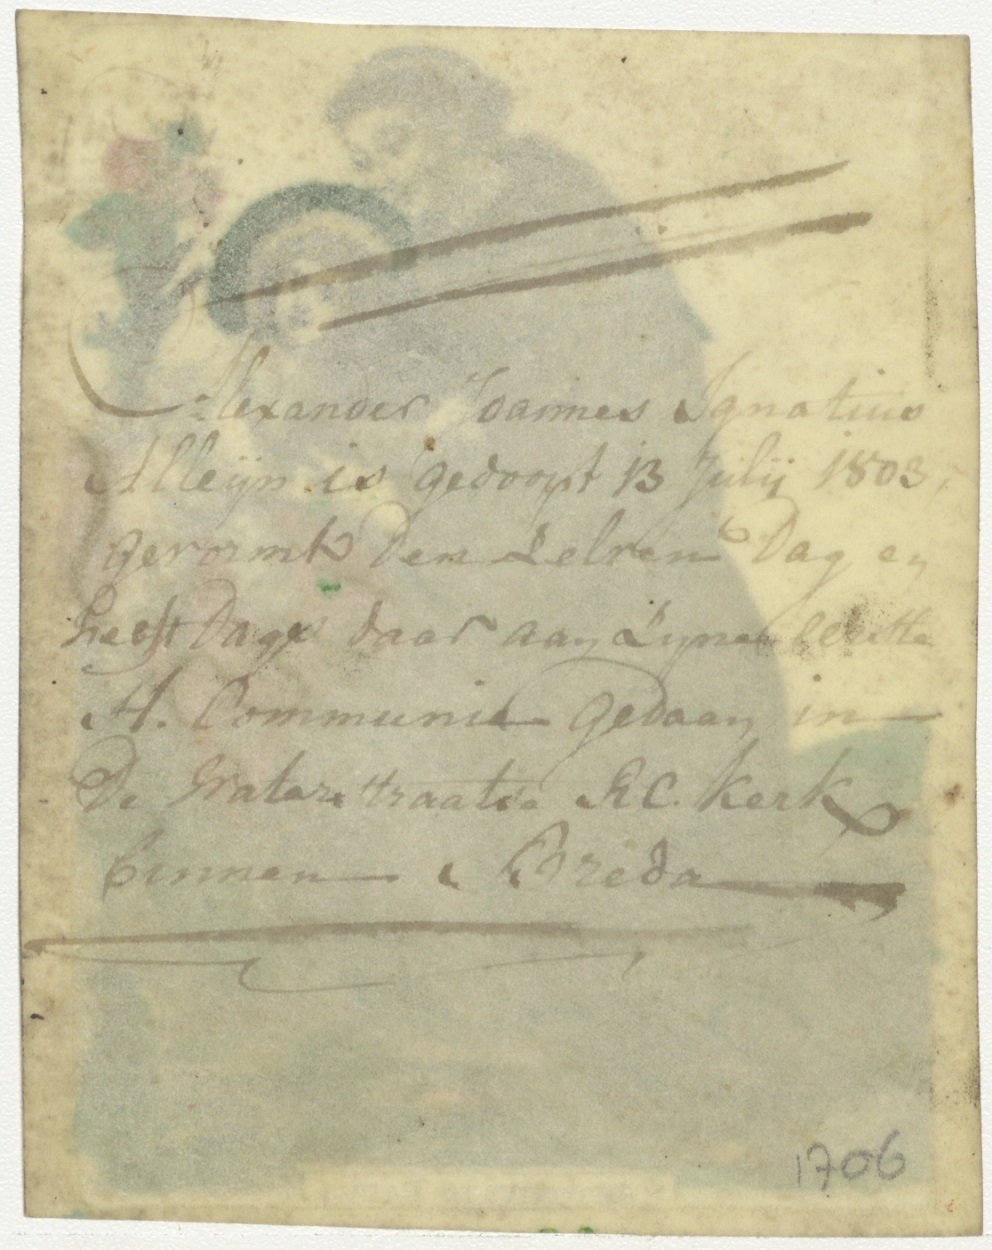 Alexander Joannes Ignatius
Alleijn is gedoopt 13 Julij 1803,
gevormt den Zelven Dag en
heeft Dags daar aan Zyne eerste
H. Communie gedaan in
De Waterstraatse R.C. Kerk
binnen Breda
1706